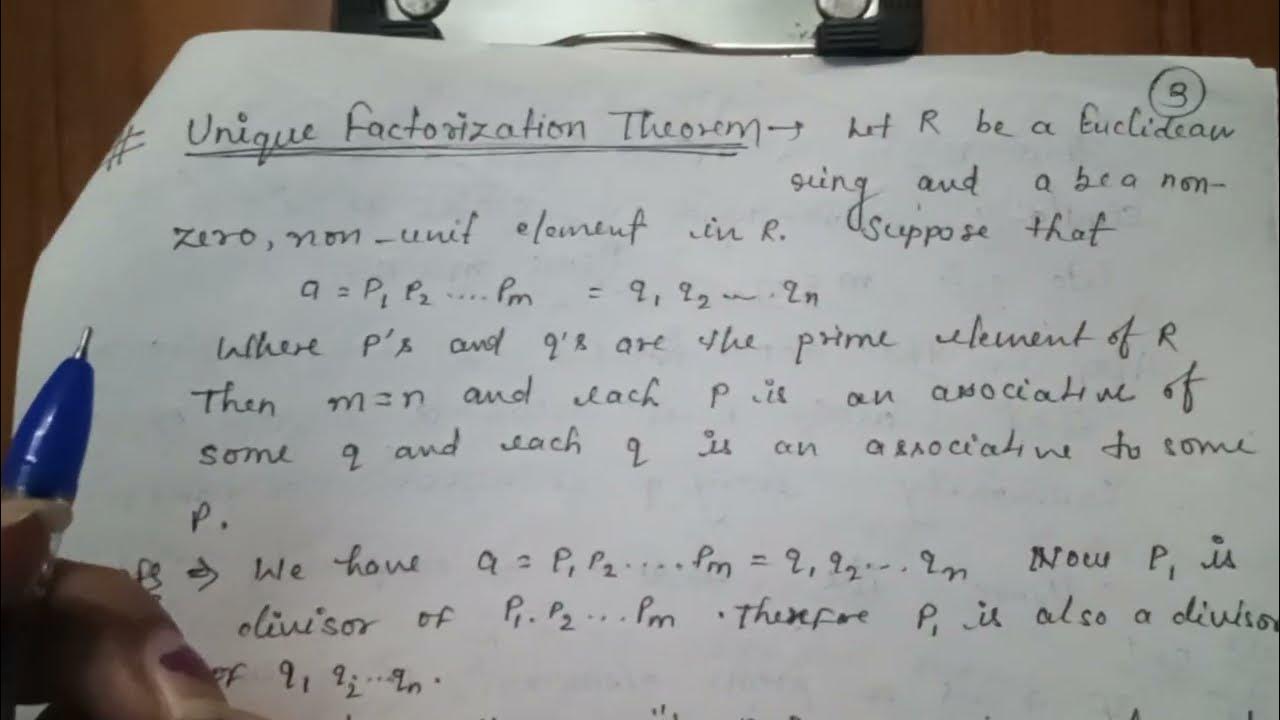 3
# Unique Factorization Theorem → Let R be a Euclidean
ring and a be a non-
zero, non-unit element in R. Suppose that
a = P₁ P₂ .... Pm = q₁ q₂ ... qn
Where P's and q's are the prime element of R
Then m=n and each P is an associative of
some q and each q is an associative to some
P.
⇒ We have a = P₁ P₂ ..... Pm = q₁ q₂... qn Now P₁ is
divisor of P₁. P₂ ... Pm . Therefore P₁ is also a divisor
of q₁ q₂...qn.